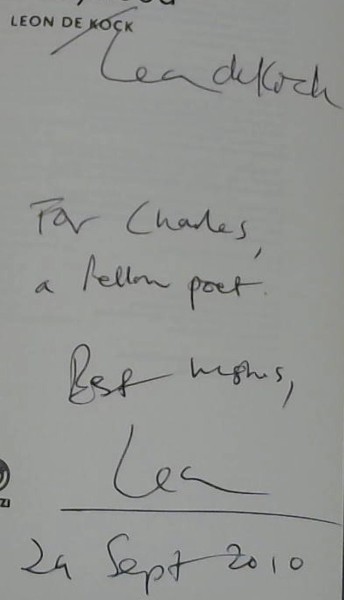 LEON DE KOCK
Leon de Kock
For Charles,
a fellow poet.
Best wishes,
Leon
ZI
29 Sept 2010